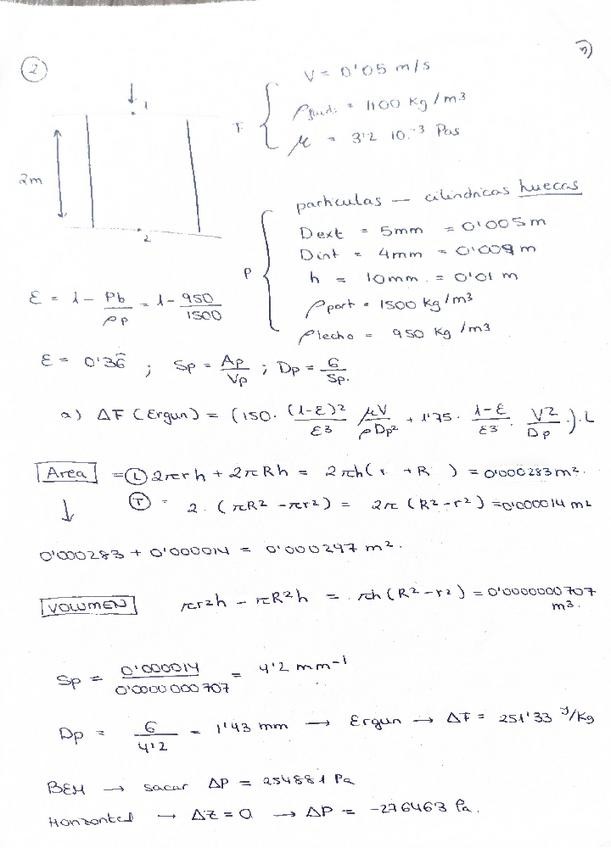 2
V = 0'05 m/s
ρfluid. = 1100 Kg/m³
F
μ = 3'2 10⁻³ Pas
1
2m
2
particulas — cilindricas huecas
Dext = 5mm = 0'005m
Dint = 4mm = 0'004 m
P
h = 10mm. = 0'01 m
ρpart = 1500 Kg/m³
ρlecho = 950 Kg/m³
ε = 1 - ρb/ρp = 1 - 950/1500
ε = 0'36 ; Sp = Ap/Vp ; Dp = 6/Sp.
a) ΔF (Ergun) = (150. (1-ε)²/ε³ μV/ρDp² + 1'75. 1-ε/ε³ . V²/Dp).L
Area = (L) 2πrh + 2πRh = 2πh(r + R) = 0'000283m².
(T) = 2. (πR² - πr²) = 2π (R² - r²) = 0'000014 m²
0'000283 + 0'000014 = 0'000297 m².
VOLUMEN πr²h - πR²h = πh(R² - r²) = 0'0000000707 m³.
Sp = 0'000014/0'0000000707 = 4'2 mm⁻¹
Dp = 6/4'2 = 1'43 mm → Ergun → ΔF = 251'33 J/Kg
BEM → sacar ΔP = 254881 Pa
Horizontal → ΔZ = 0 → ΔP = -276463 Pa.